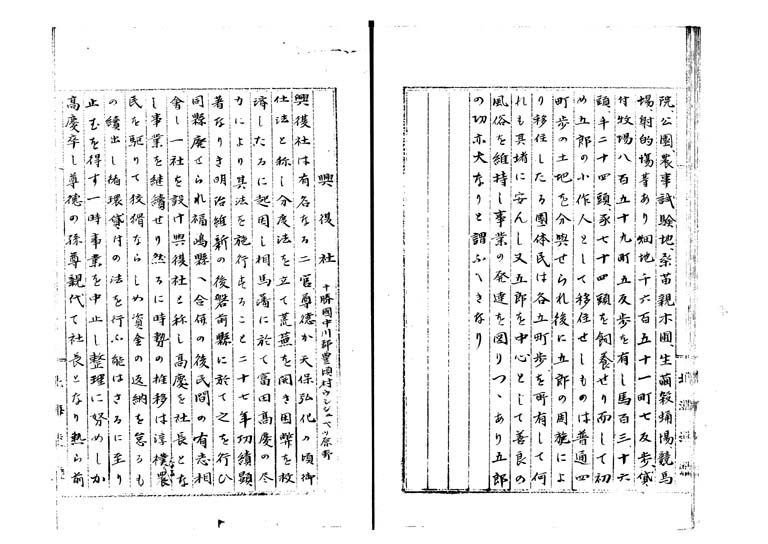 院、公園、農事試験地、桑苗親木園、生繭殺蛹場、競馬
場、射的場等あり畑地千六百五十一町七反歩、貸
付牧場八百五十九町五反歩を有し馬百三十六
頭、牛二十四頭、豕七十四頭を飼養せり而して初
め五郎の小作人として移住せしものは普通四
町歩の土地を分與せられ後に五郎の周旋によ
り移住したる團体民は各五町歩を所有して何
れも其堵に安んし又五郎を中心として善良の
風俗を維持し事業の発達を図りつゝあり五郎
の功亦大なりと謂ふへきなり
興復社 十勝國中川郡豊頃村ウシシュベツ原野
興復社は有名なる二宮尊徳か天保弘化の頃御
仕法と称し分度法を立て荒蕪を開き困弊を救
済したるに起因し相馬藩に於て富田高慶の尽
力により其法を施行すること二十七年功績顕
著なりき明治維新の後磐前縣に於て之を行ひ
同縣廃せられ福嶋縣へ合併の後民間の有志相
會し一社を設け興復社と称し高慶を社長とな
し事業を継續せり然るに時勢の推移は淳樸なる農
民を駆りて狡猾ならしめ資金の返納を怠るも
の續出し循環貸付の法を行ふ能はさるに至り
止むを得す一時事業を中止し整理に努めしか
高慶卒し尊徳の孫尊親代て社長となり熟ら前